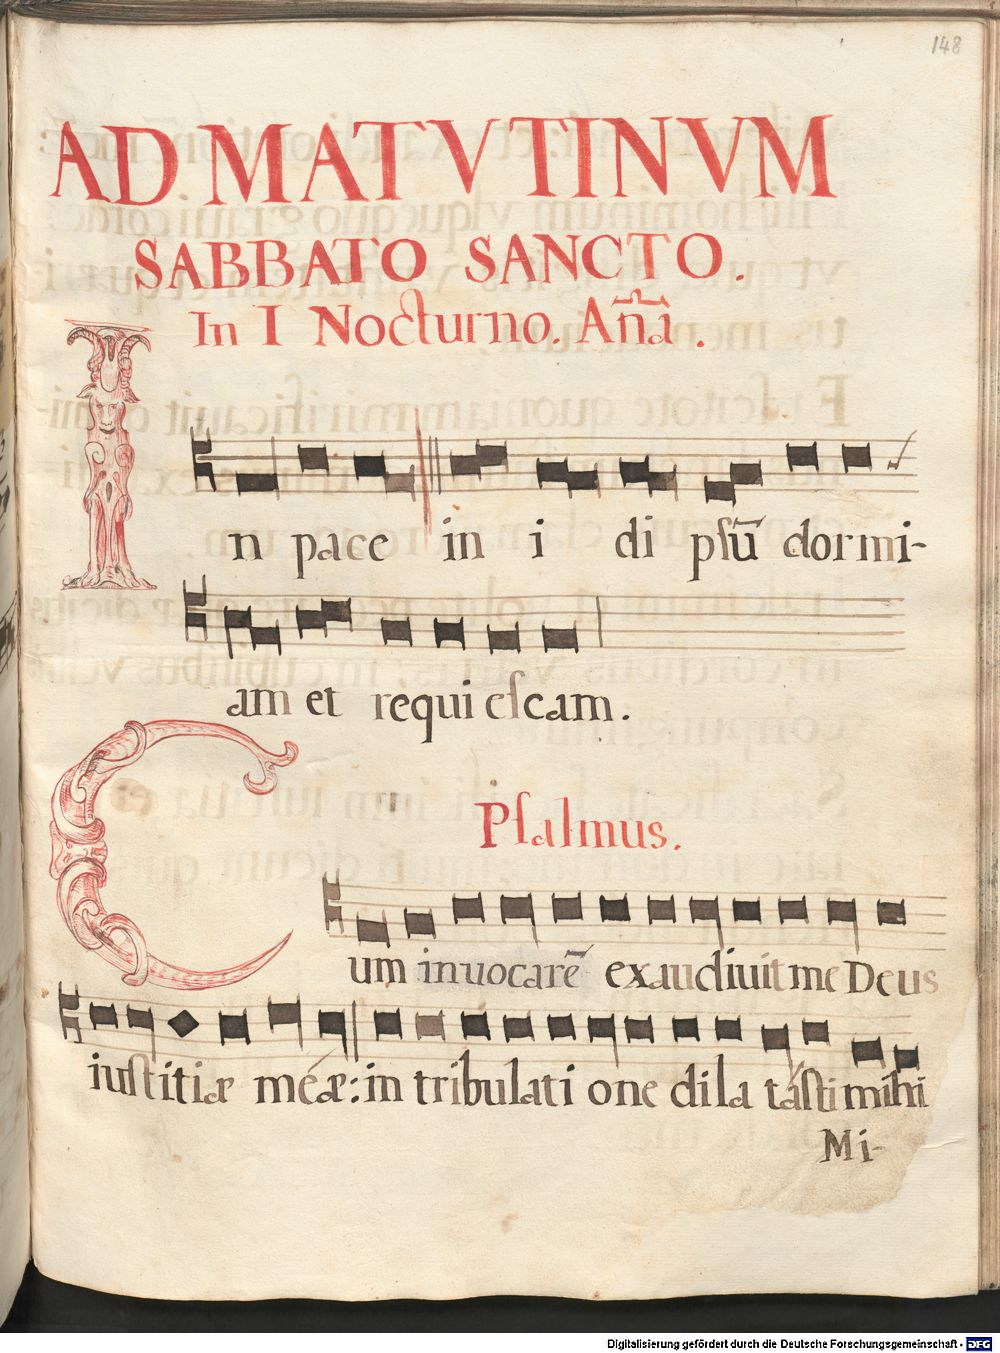 148
AD MATVTINVM
SABBATO SANCTO.
In I Nocturno. An̄a.
In pace in i di psū dormi-
am et requi eſcam.
Pſalmus.
Cum inuocarē exaudiuit me Deus
iuſtitiæ meæ: in tribulati one dila táſti mihi
Mi-
Digitalisierung gefördert durch die Deutsche Forschungsgemeinschaft - DFG